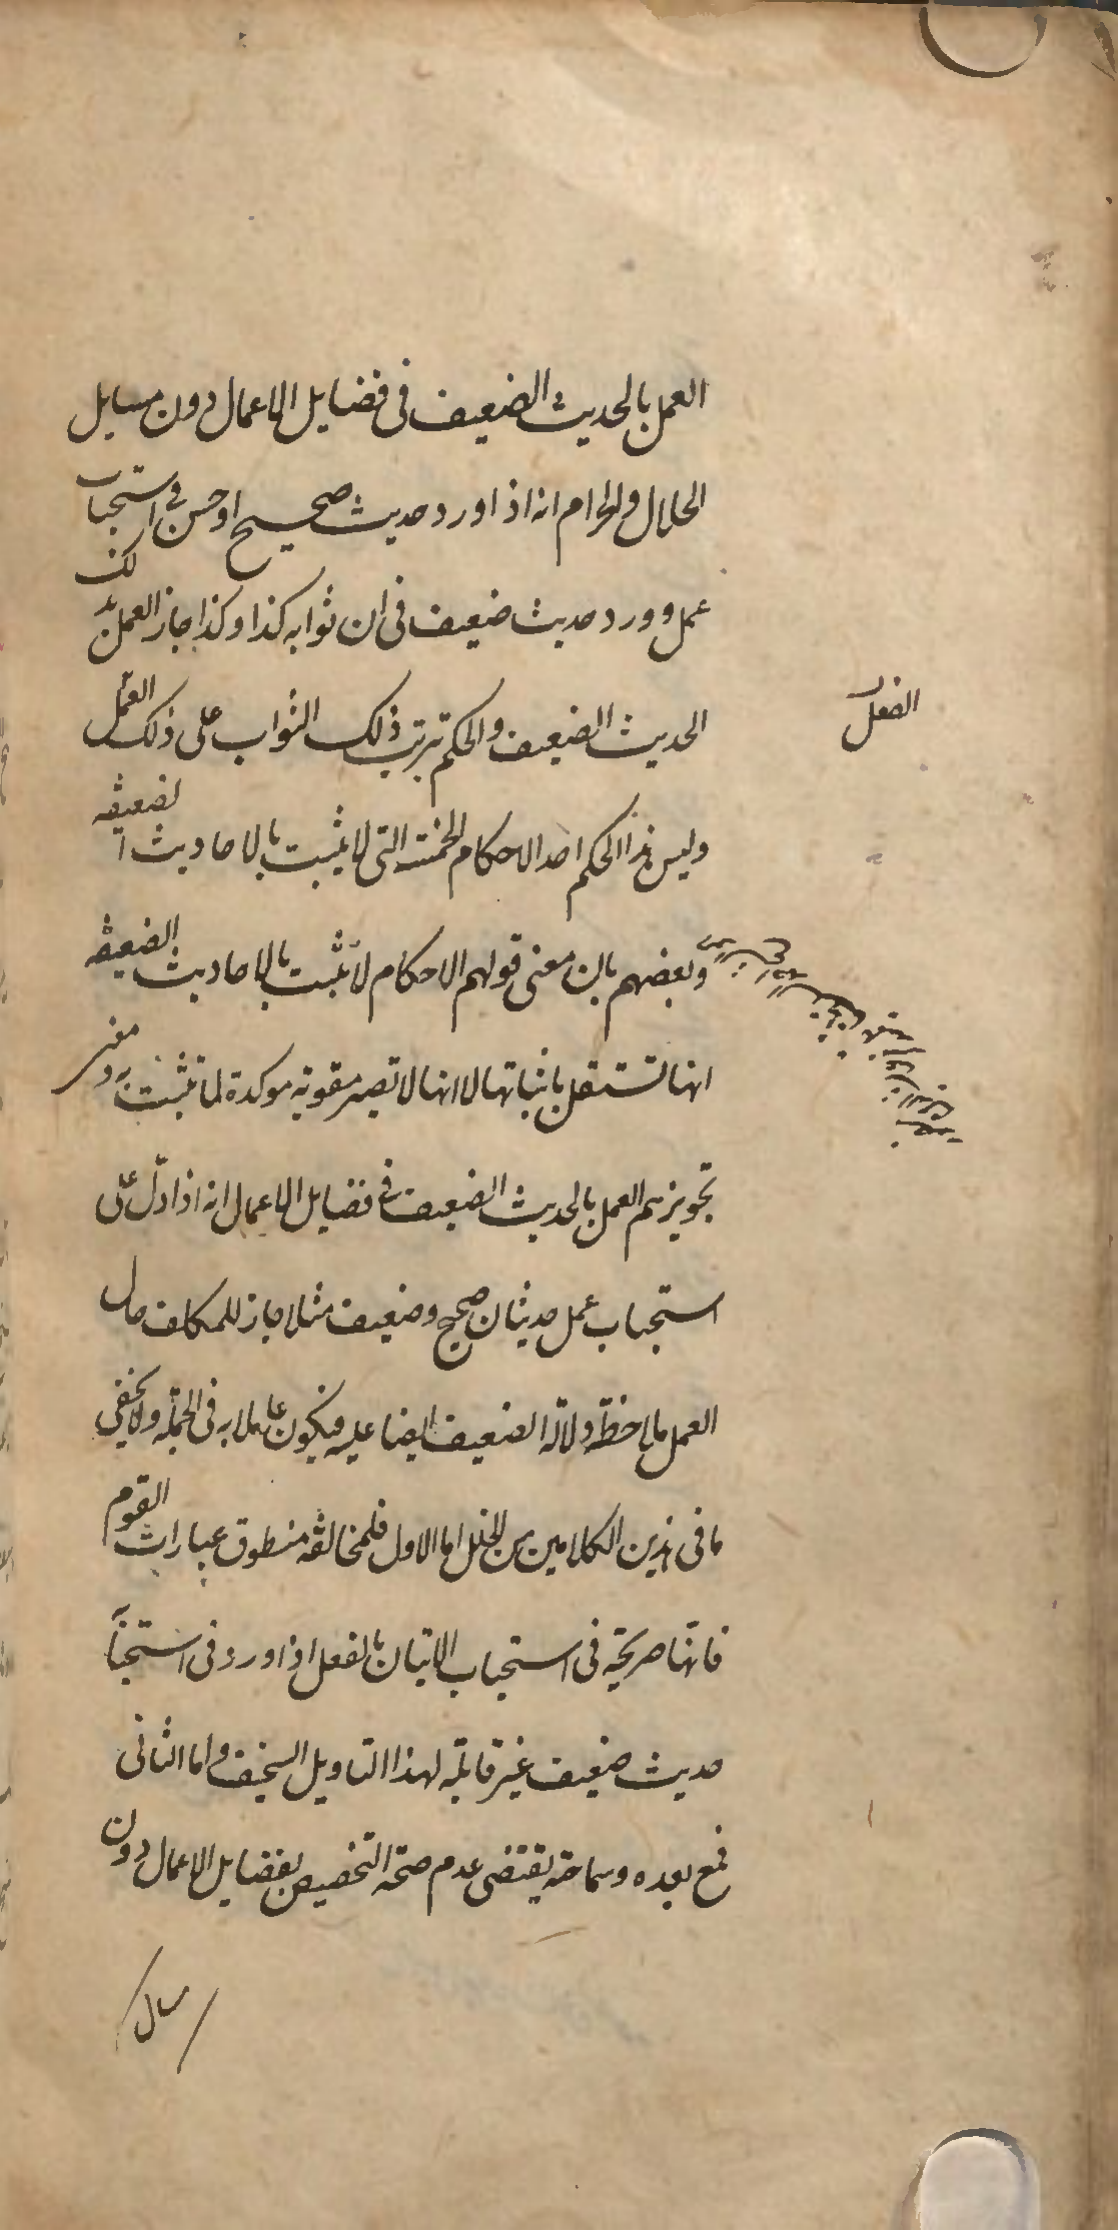 العمل بالحديث الضعيف فى فضايل الاعمال دون مسايل
الحلال والحرام انه اذا ورد حديث صحيح او حسن فى استحباب
عمل وورد حديث ضعيف فى ان ثوابه كذا وكذا جاز العمل بذلك
الحديث الضعيف والحكم بترتب ذلك الثواب على ذلك العمل
الفعل
وليس هذا الحكم احد الاحكام الخمسة التى لا يثبت بالاحاديث الضعيفه
وبعضهم بان معنى قولهم الاحكام لا تثبت بالاحاديث الضعيفه
انها تستقل باثباتها لا انها لا تصير مقوية موكدة لما تثبت به ومعنى
تجويزهم العمل بالحديث الضعيف فى فضايل الاعمال انه اذا دلّ على
استحباب عمل حديثان صحيح وضعيف مثلا جاز للمكلف حال
العمل ملاحظة دلالة الضعيف ايضا عليه فيكون عاملا به فى الجملة ولا يخفى
ما فى هذين الكلامين من الخلل اما الاول فلمخالفة منطوق عبارات القوم
فانها صريحة فى استحباب الاتيان بالفعل اذا ورد فى استحبابه
حديث ضعيف غير قابلة لهذا التاويل السخيف واما الثانى
فمع بعده وسماجته يقتضى عدم صحة التخصيص بفضايل الاعمال دون
مسايل